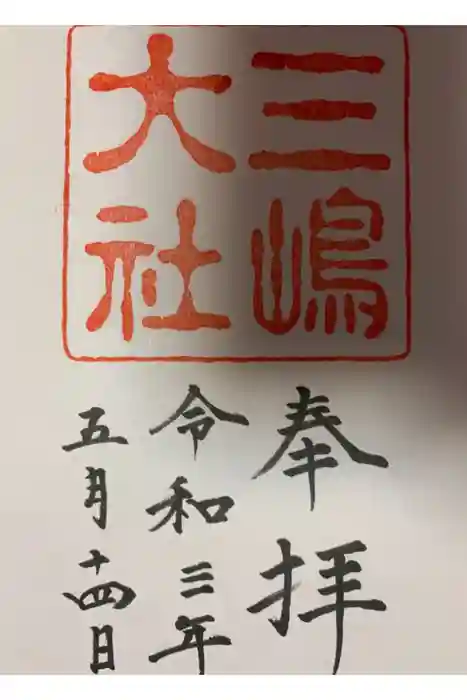 三嶋
大社
奉拝
令和三年
五月十四日